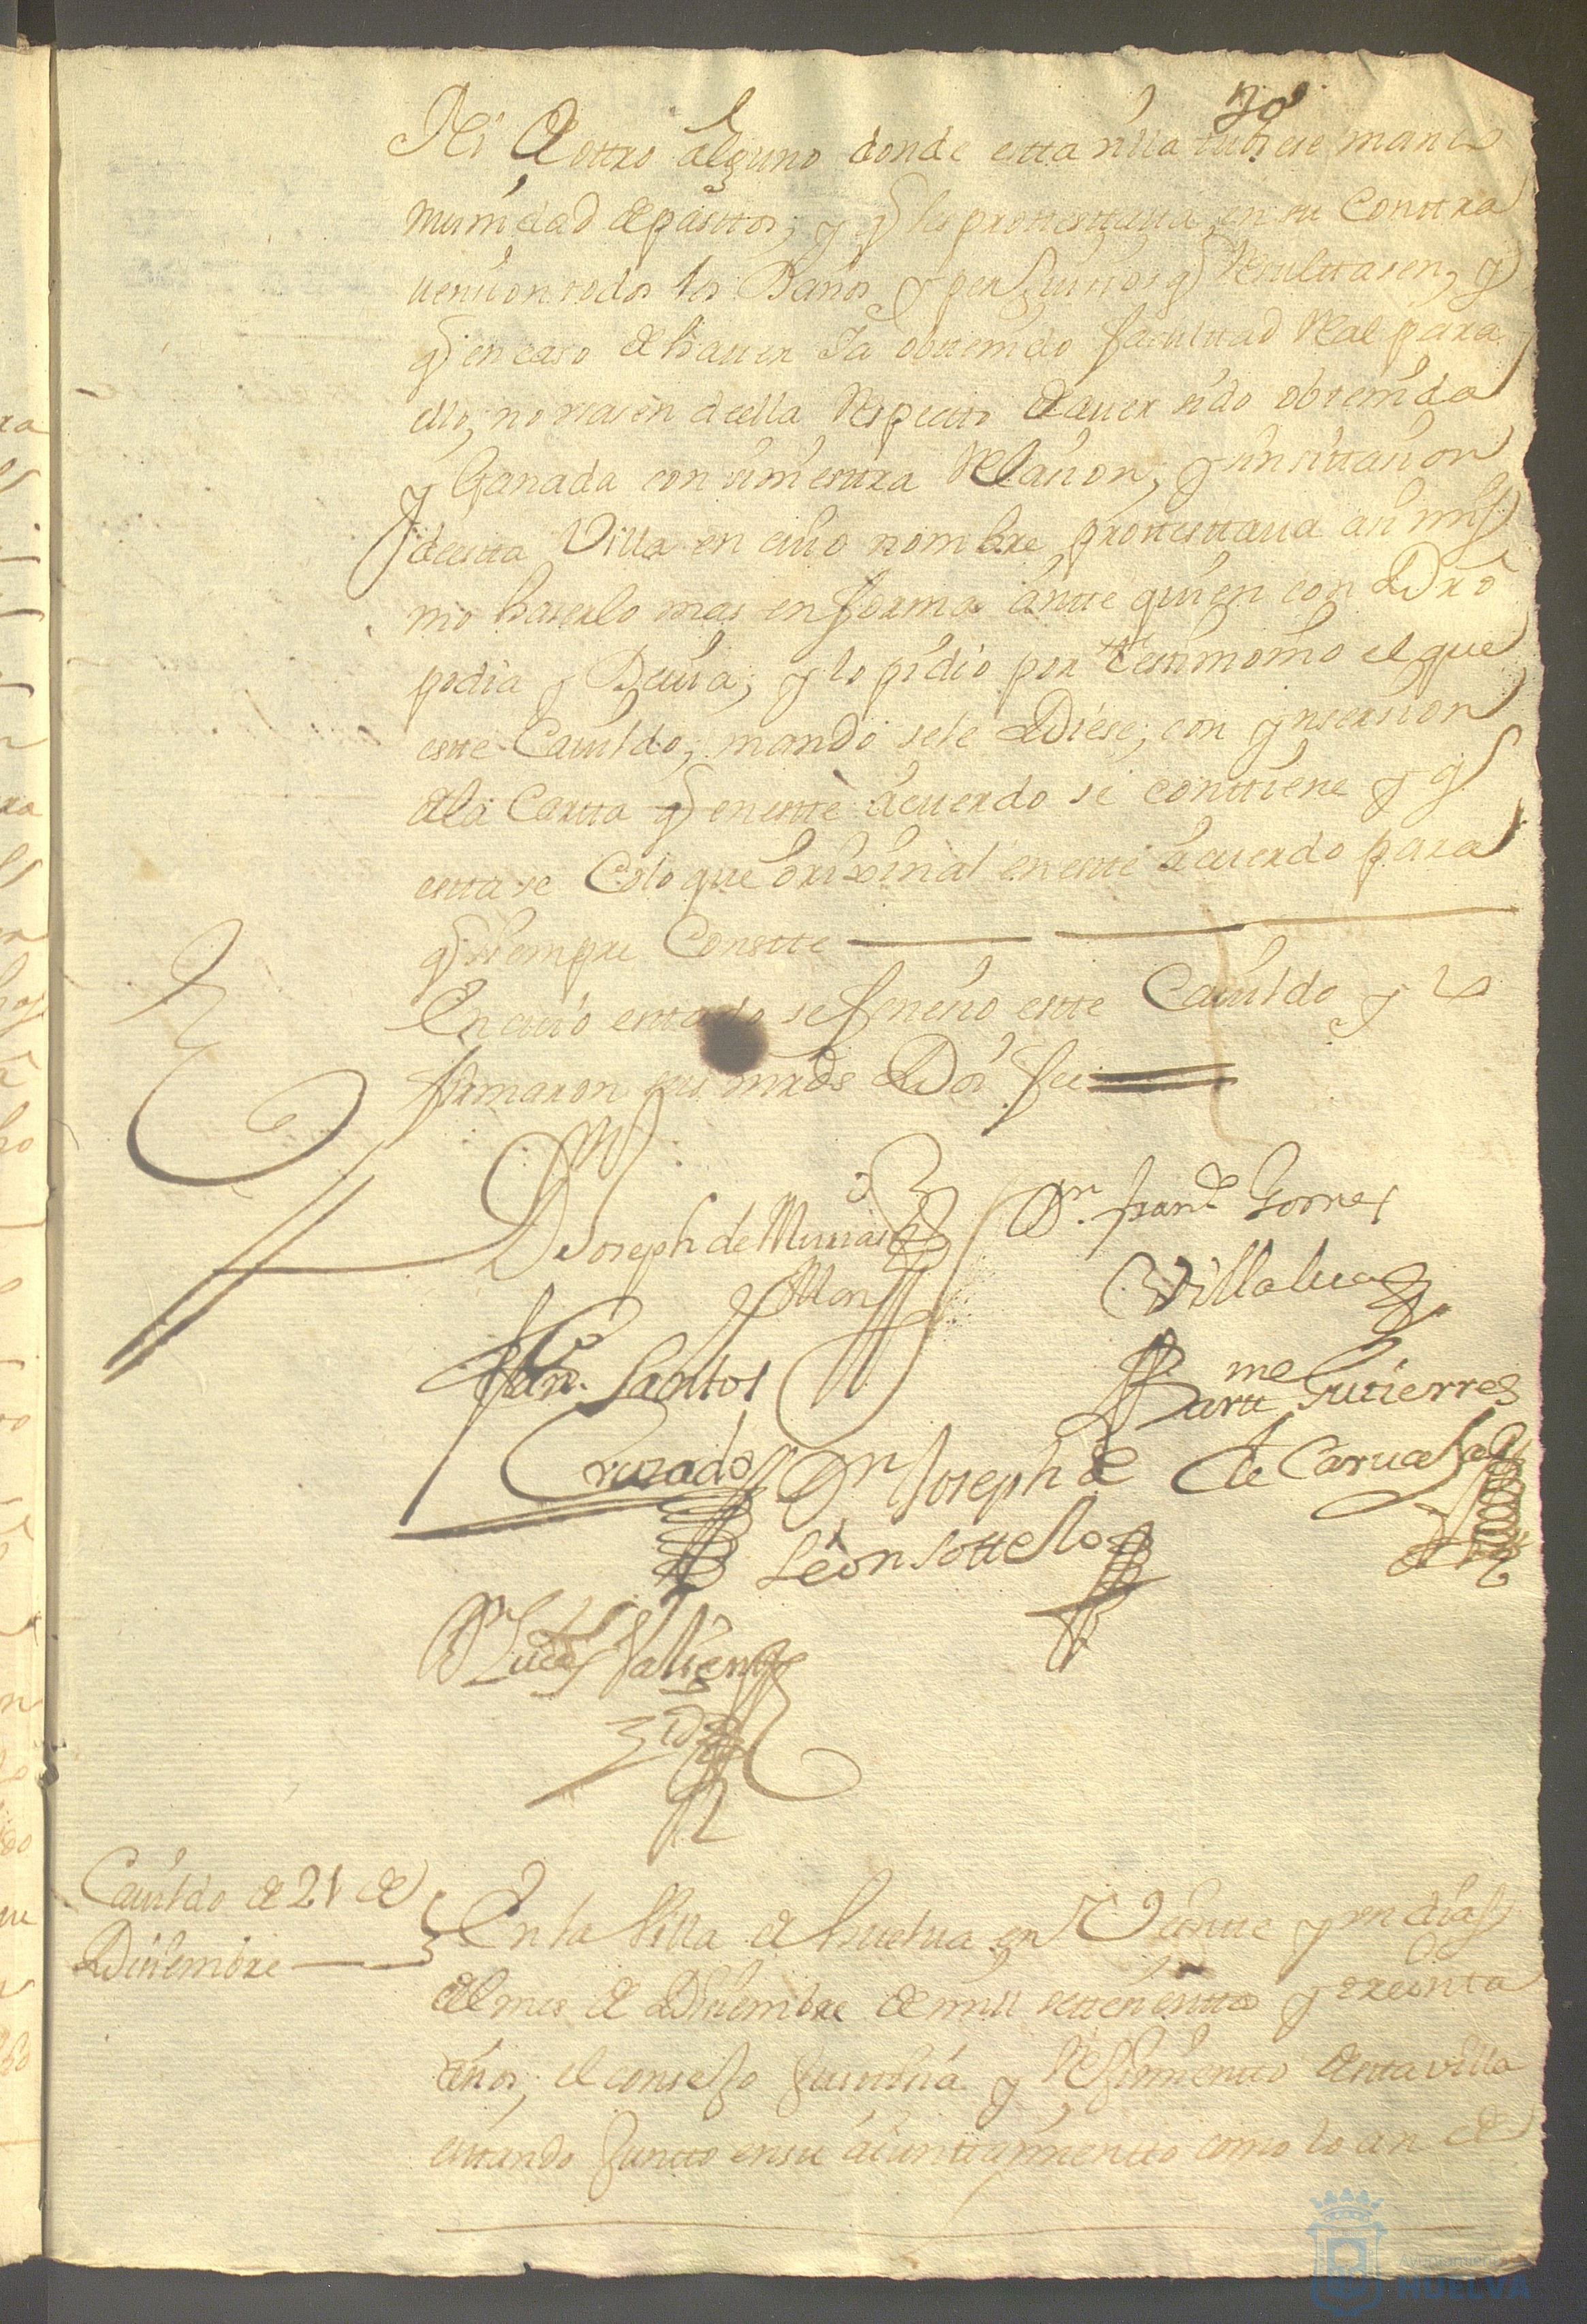 30
Ni A ottro alguno donde esta villa tubiese manco
munidad de pasttos, y q les prottesttaua en su Conttra
uencion todos los Daños y perJuicios q Resulttasen, y
q en caso de hauer Ya obttenido faculttad Real para
ello, no vsasen de ella Respectto de auer sido obtenida
y Ganada con siniesttra Relasion, y sin sittasion
de estta Villa en cuio nombre prottesttaua asi mis
mo haserlo mas en forma antte quien con Dro
podia y Deuia, y lo pidio por testtimonio el que
estte Cauildo, mando sele Diese, con ynsersion
de la Cartta q en estte acuerdo se conttiene y q
estta se Coloque orixinal en estte acuerdo para
q siempre Constte
En cuio esttado se feneçio estte Cauildo y lo
firmaron sus mrds Doi fee
D Joseph de
Dn franco Gomes
Villalua
Franco Santos
Barttme Gutierres
Cruzado
Dn Joseph de
de Caruaxal
Leon Sottello
Lucas Valiente
Cauildo de 21 de
Disiembre
En la Villa de huelua en Veintte y un dias
del mes de Disiembre de mill settesienttos y treinta
años, el consejo Justtisia y Reximientto de esta villa
esttando Juntto en su aiunttamientto como lo an de
Ayuntamiento
HUELVA